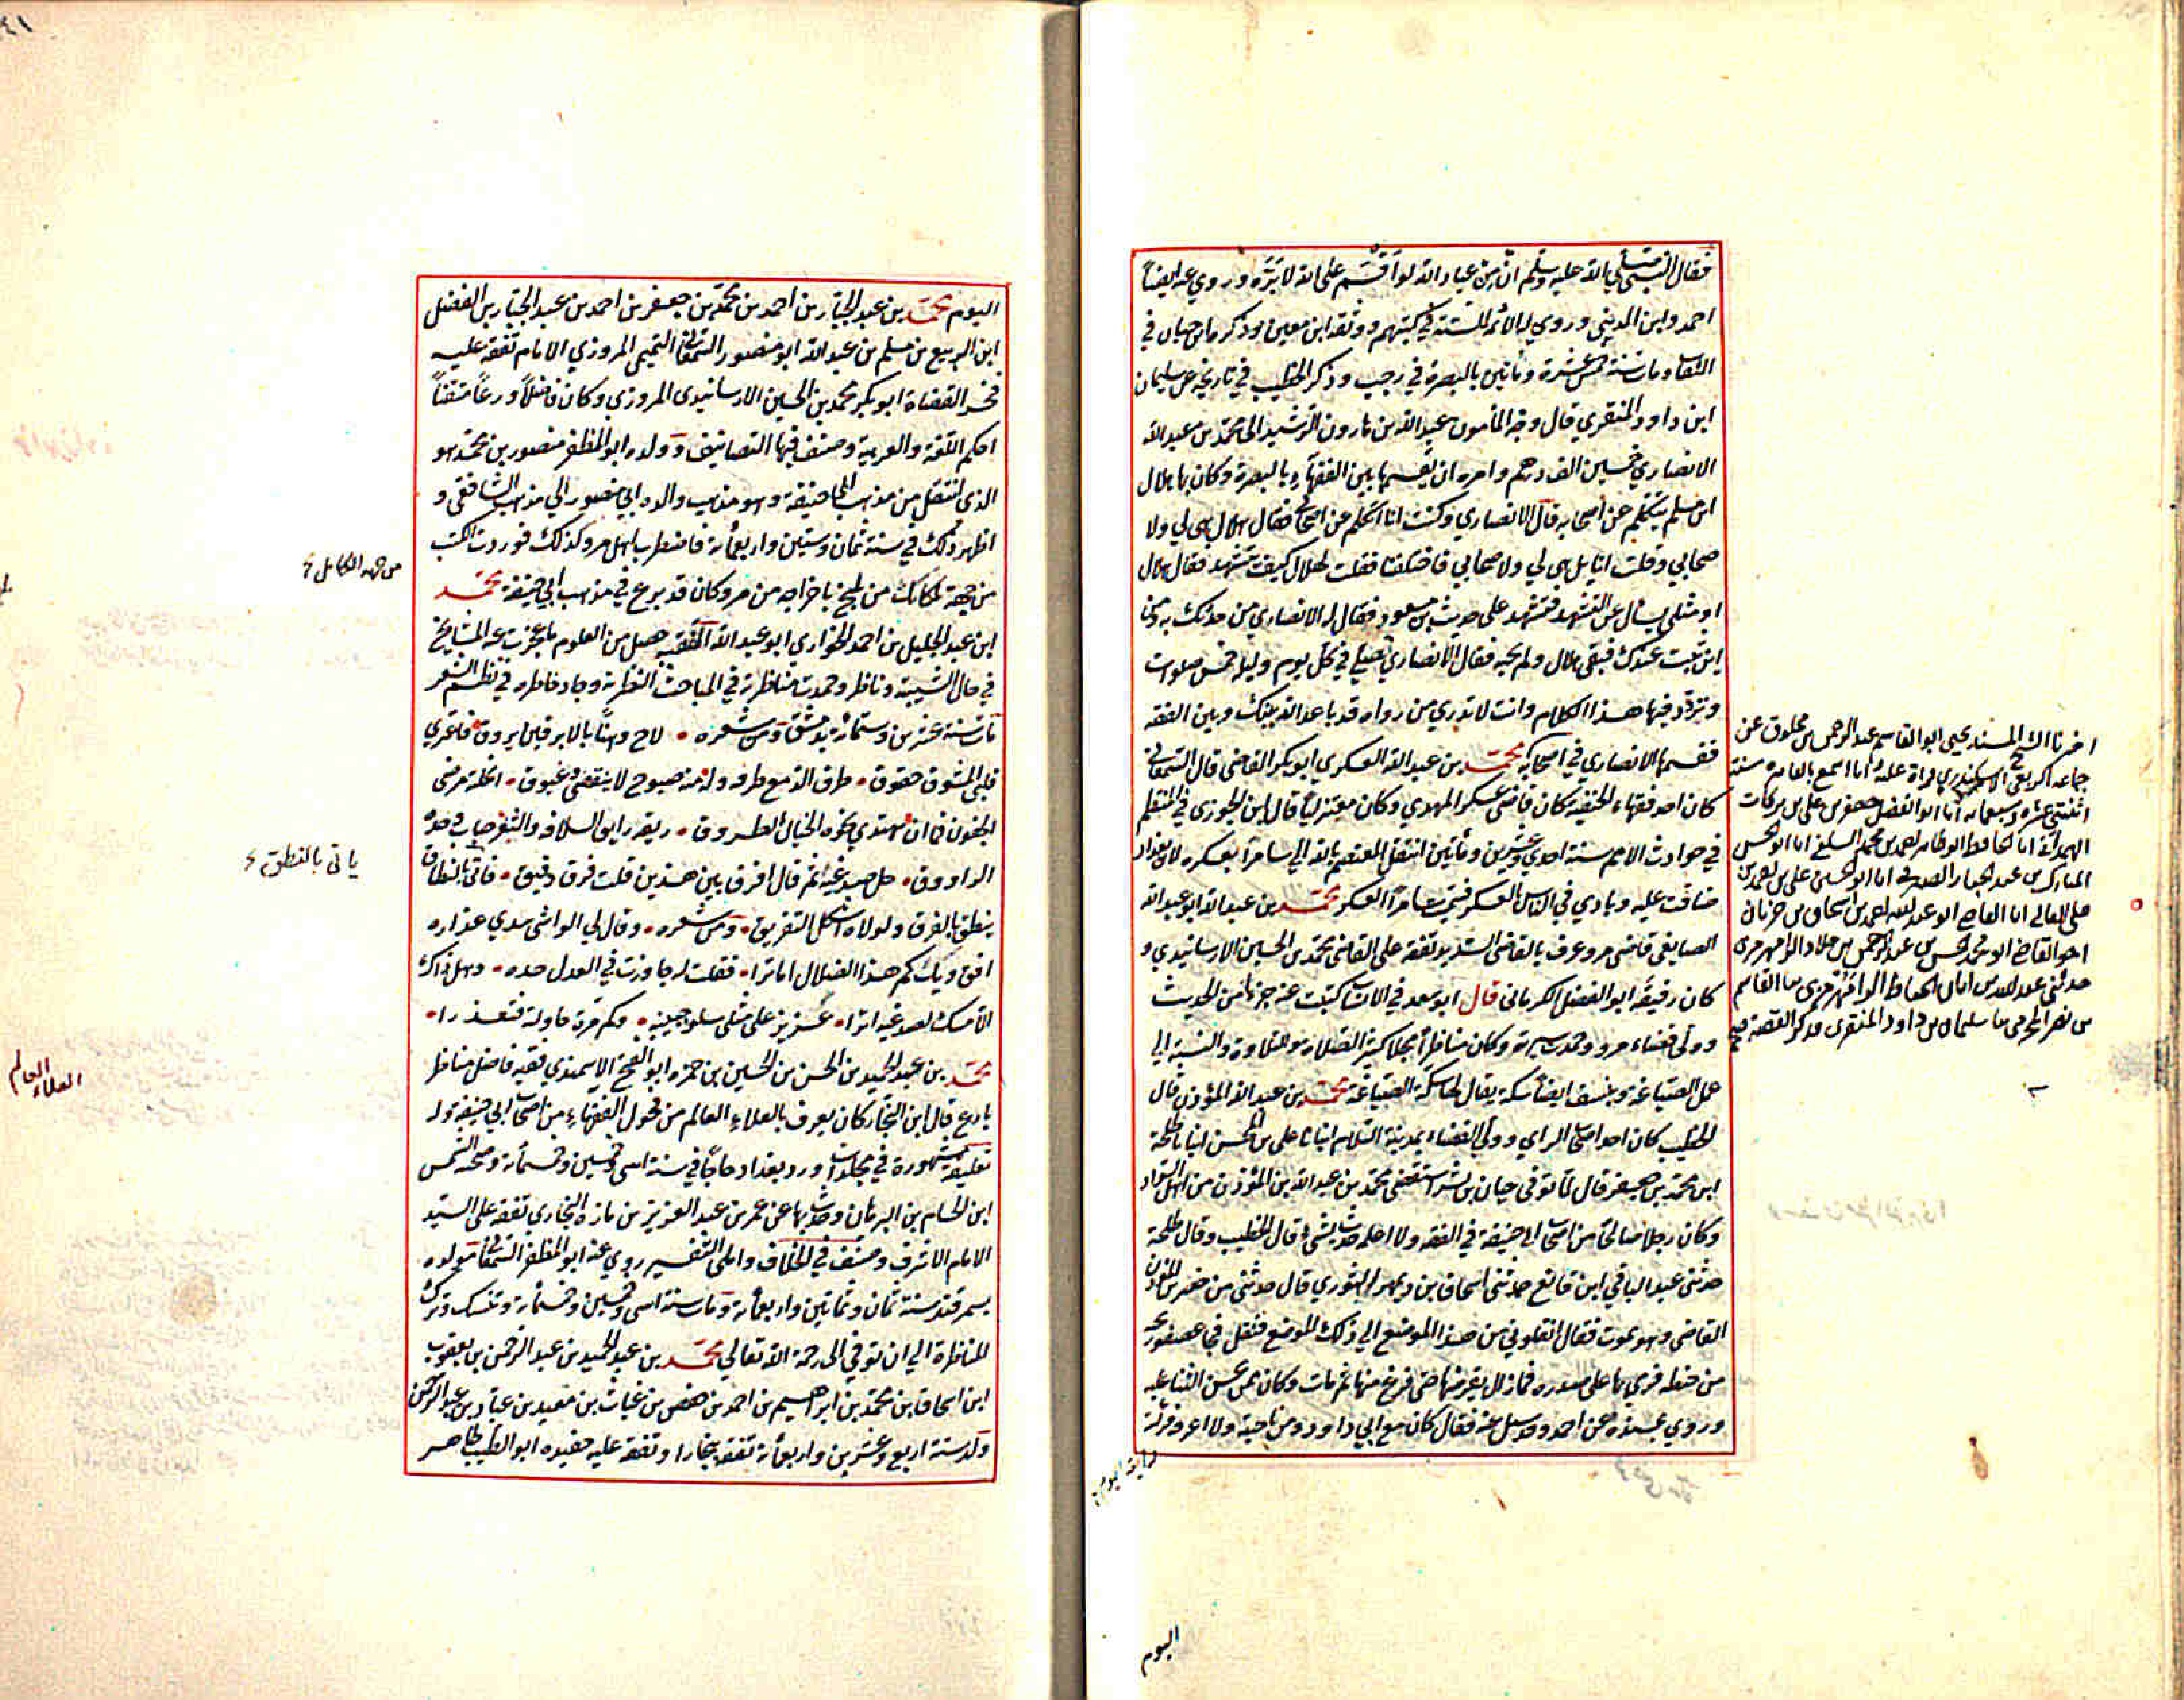 فقال النبي صلى الله عليه وسلم ان من عباد الله لو اقسم على الله لابره وروي عنه ايضاً
احمد وابن المديني وروي له الائمة الستة في كتبهم ووثقه ابن معين وذكره ابن حبان في
الثقات ومات سنة خمس عشرة ومأتين بالبصرة في رجب وذكر الخطيب في تاريخه عن سليمان
ابن داود المنقري قال وجه المأمون عبد الله بن هارون الرشيد الى محمد بن عبد الله
الانصاري خمسين الف درهم وامره ان يقسمها بين الفقهاء بالبصرة وكان بها هلال
ابن مسلم يتكلم عن اصحابه قال الانصاري وكنت انا اتكلم عن اصحابي فقال هلال هي لي ولا
صحابي وقلت انا بل هي لي ولاصحابي فاختلفنا فقلت لهلال كيف تتشهد فقال هلال
او مثلي يسأل عن التشهد فتشهد على حديث ابن مسعود فقال له الانصاري من حدثك به ومن
اين ثبت عندك فبقي هلال ولم يجبه فقال الانصاري تصلي في كل يوم وليلة خمس صلوات
وتردد فيها هذا الكلام وانت لا تدري من رواه قد باعد الله بينك وبين الفقه
فقسمها الانصاري في اصحابه محمد بن عبد الله العسكري ابو بكر القاضي قال السمعاني
كان احد فقهاء الحنفية كان قاضي عسكر المهدي وكان معتزلياً قال ابن الجوزي في المنتظم
في حوادث الامم سنة احدي وعشرين ومأتين انتقل المعتصم بالله الي سامرا بعسكره لان بغداد
ضاقت عليه ونادي في الناس العسكر فسميت سامرا العسكر محمد بن عبد الله ابو عبد الله
الصايغي قاضي مرو عرف بالقاضي السديد تفقه على القاضي محمد بن الحسين الارسابندي و
كان رفيقه ابو الفضل الكرماني قال ابو سعد في الانساب كتبت عنه جزءاً من الحديث
وولي قضاء مرو وحمدت سيرته وكان مناظراً فحلا كثير الصلاة والتلاوة والنسبة الي
عمل الصياغة وبنسف ايضا سكة يقال لها سكة الصياغة محمد بن عبد الله المؤذن قال
الخطيب كان احد اصحاب الراي وولي القضاء بمدينة السلام انبانا علي بن المحسن انبانا طلحة
ابن محمد بن جعفر قال لما توفي حيان بن بشر استقضي محمد بن عبد الله بن المؤذن من اهل السواد
وكان رجلا صالحا من اصحاب ابي حنيفة في الفقه ولا اعلمه حدث بشئ قال الخطيب وقال طلحة
حدثني عبد الباقي ابن قانع حدثني اسحاق بن ديمهر التوزي قال حدثني من حضر ابن المؤذن
القاضي وهو يموت فقال انقلوني من هذا الموضع الي ذلك الموضع فنقل فجا عصفور بحبة
من حنطة فرمي بها على صدره فما زال يقرضها حتى فرغ منها ثم مات وكان ممن يحسن الثنا عليه
وروي بسنده عن احمد وقد سئل عنه فقال كان مع ابي داود ومن ناحيته ولا اعرف رأيه
اخبرنا الشيخ المسند يحيى ابو القاسم عبد الرحمن بن مخلوف عن
جماعة الربعي الاسكندري قراة عليه وانا اسمع بالقاهرة سنة
اثنتي عشرة وسبعمائة انا ابو الفضل جعفر بن علي بن بركات
الهمداني انا الحافظ ابو طاهر احمد بن محمد السلفي انا ابو الحسن
المبارك بن عبد الجبار الصيرفي انا ابو الحسن علي بن احمد بن
علي الفالي انا القاضي ابو عبد الله احمد بن اسحاق بن خربان
انا القاضي ابو محمد الحسن بن عبد الرحمن بن خلاد الرامهرمزي
بن نصر المخرمي ثنا سليمان بن داود المنقري فذكر القصة صح
اليوم
اليوم محمد بن عبد الجبار بن احمد بن محمد بن جعفر بن احمد بن عبد الجبار بن الفضل
ابن الربيع بن مسلم بن عبد الله ابو منصور السمعاني التميمي المروزي الامام تفقه عليه
فخر القضاة ابو بكر محمد بن الحسين الارسابندي المروزي وكان فاضلاً ورعاً متقناً
احكم اللغة والعربية وصنف فيها التصانيف وولده ابو المظفر منصور بن محمد هو
الذي انتقل من مذهب ابي حنيفة وهو مذهب والده ابي منصور الي مذهب الشافعي و
اظهر ذلك في سنة ثمان وستين واربعمأة فاضطرب اهل مرو كذلك فوردت الكتب
من جهة بلكابك من بلخ باخراجه من مرو كان قد برع في مذهب ابي حنيفة محمد
ابن عبد الجليل بن احمد الخواري ابو عبد الله الفقيه حصل من العلوم ما عجزت عنه المشايخ
في حال الشبيبة وناظر وحمدت مناظرته في المباحث النظرية وجاد خاطره في نظم الشعر
مات سنة عشرين وستمأة بدمشق ومن شعره . لاح وهنا بالابرقين بروق فاعتري
قلبي المشوق حقوق . طرق الدمع طرفه وله منه صبوح لا ينقضي وغبوق . اخلة مرضي
الجفون فما ان تهتدي نحوه الخيال الطروق . ريقه رايق السلافه والثغر حباب وخده
الراووق . حل صدغيه ثم قال افرق بين هذين قلت فرق دقيق . فاتي بالنطاق
ينطق بالفرق ولولاه اشكل التفريق . ومن شعره . وقال لي الواشي سدي عذاره
افق ويك كم هذا الضلال اما ترا . فقلت له جاوزت في العدل حده . وهل ذاك
الا مسك لصدغيه اترا . عزيز على مثلي سلو حبيبه . وكم مرة حاولته فتعذرا .
محمد بن عبد الحميد بن الحسن بن الحسين بن حمزه ابو الفتح الاسمندي فقيه فاضل مناظر
بارع قال ابن النجار كان يعرف بالعلاء العالم من فحول الفقهاء من اصحاب ابي حنيفة وله
تعليقة مشهورة في مجلدات ورد بغداد حاجا في سنة اثني وخمسين وخمسمأة وصحبه الشمس
ابن الحسام بن البرهان وحدث بها عن عمر بن عبد العزيز بن مازه البخاري تفقه على السيد
الامام الاشرف وصنف في الخلاف واملي التفسير روي عنه ابو المظفر السمعاني مولده
بسمرقند سنة ثمان وثمانين واربعمأة ومات سنة اثني وخمسين وخمسمأة وتنسك وترك
المناظرة الي ان توفي الى رحمة الله تعالي محمد بن عبد الحميد بن عبد الرحمن بن يعقوب
ابن اسحاق بن محمد بن ابراهيم بن احمد بن حفص بن غياث بن معبد بن عباد بن عبد الرحمن
ولد سنة اربع وعشرين واربعمأة تفقه ببخارا وتفقه عليه حفيده ابو الطيب طاهر
من جهة الكامل
ياتي بالنطق
العلاء العالم